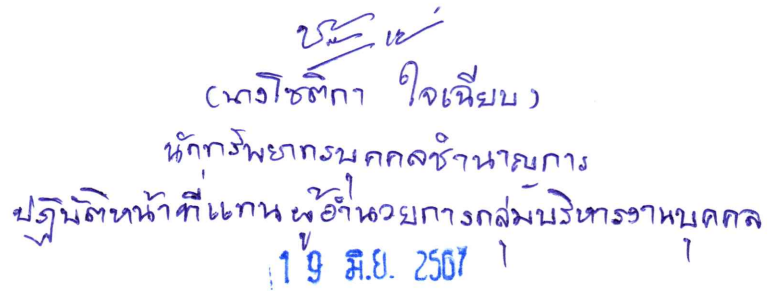 (นางโชติกา ใจเฉียบ)
นักทรัพยากรบุคคลชำนาญการ
ปฏิบัติหน้าที่แทน ผู้อำนวยการกลุ่มบริหารงานบุคคล
19 มิ.ย. 2567